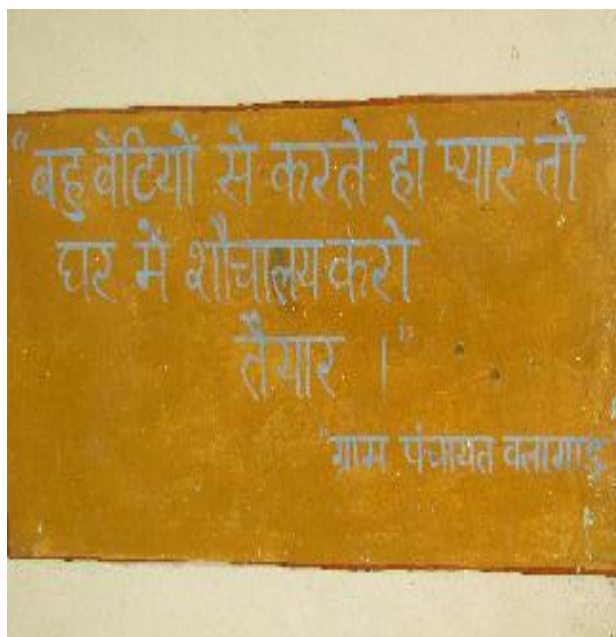 "बहु बेटियों से करते हो प्यार तो
घर मे शौचालय करो
तैयार ।"
"ग्राम पंचायत